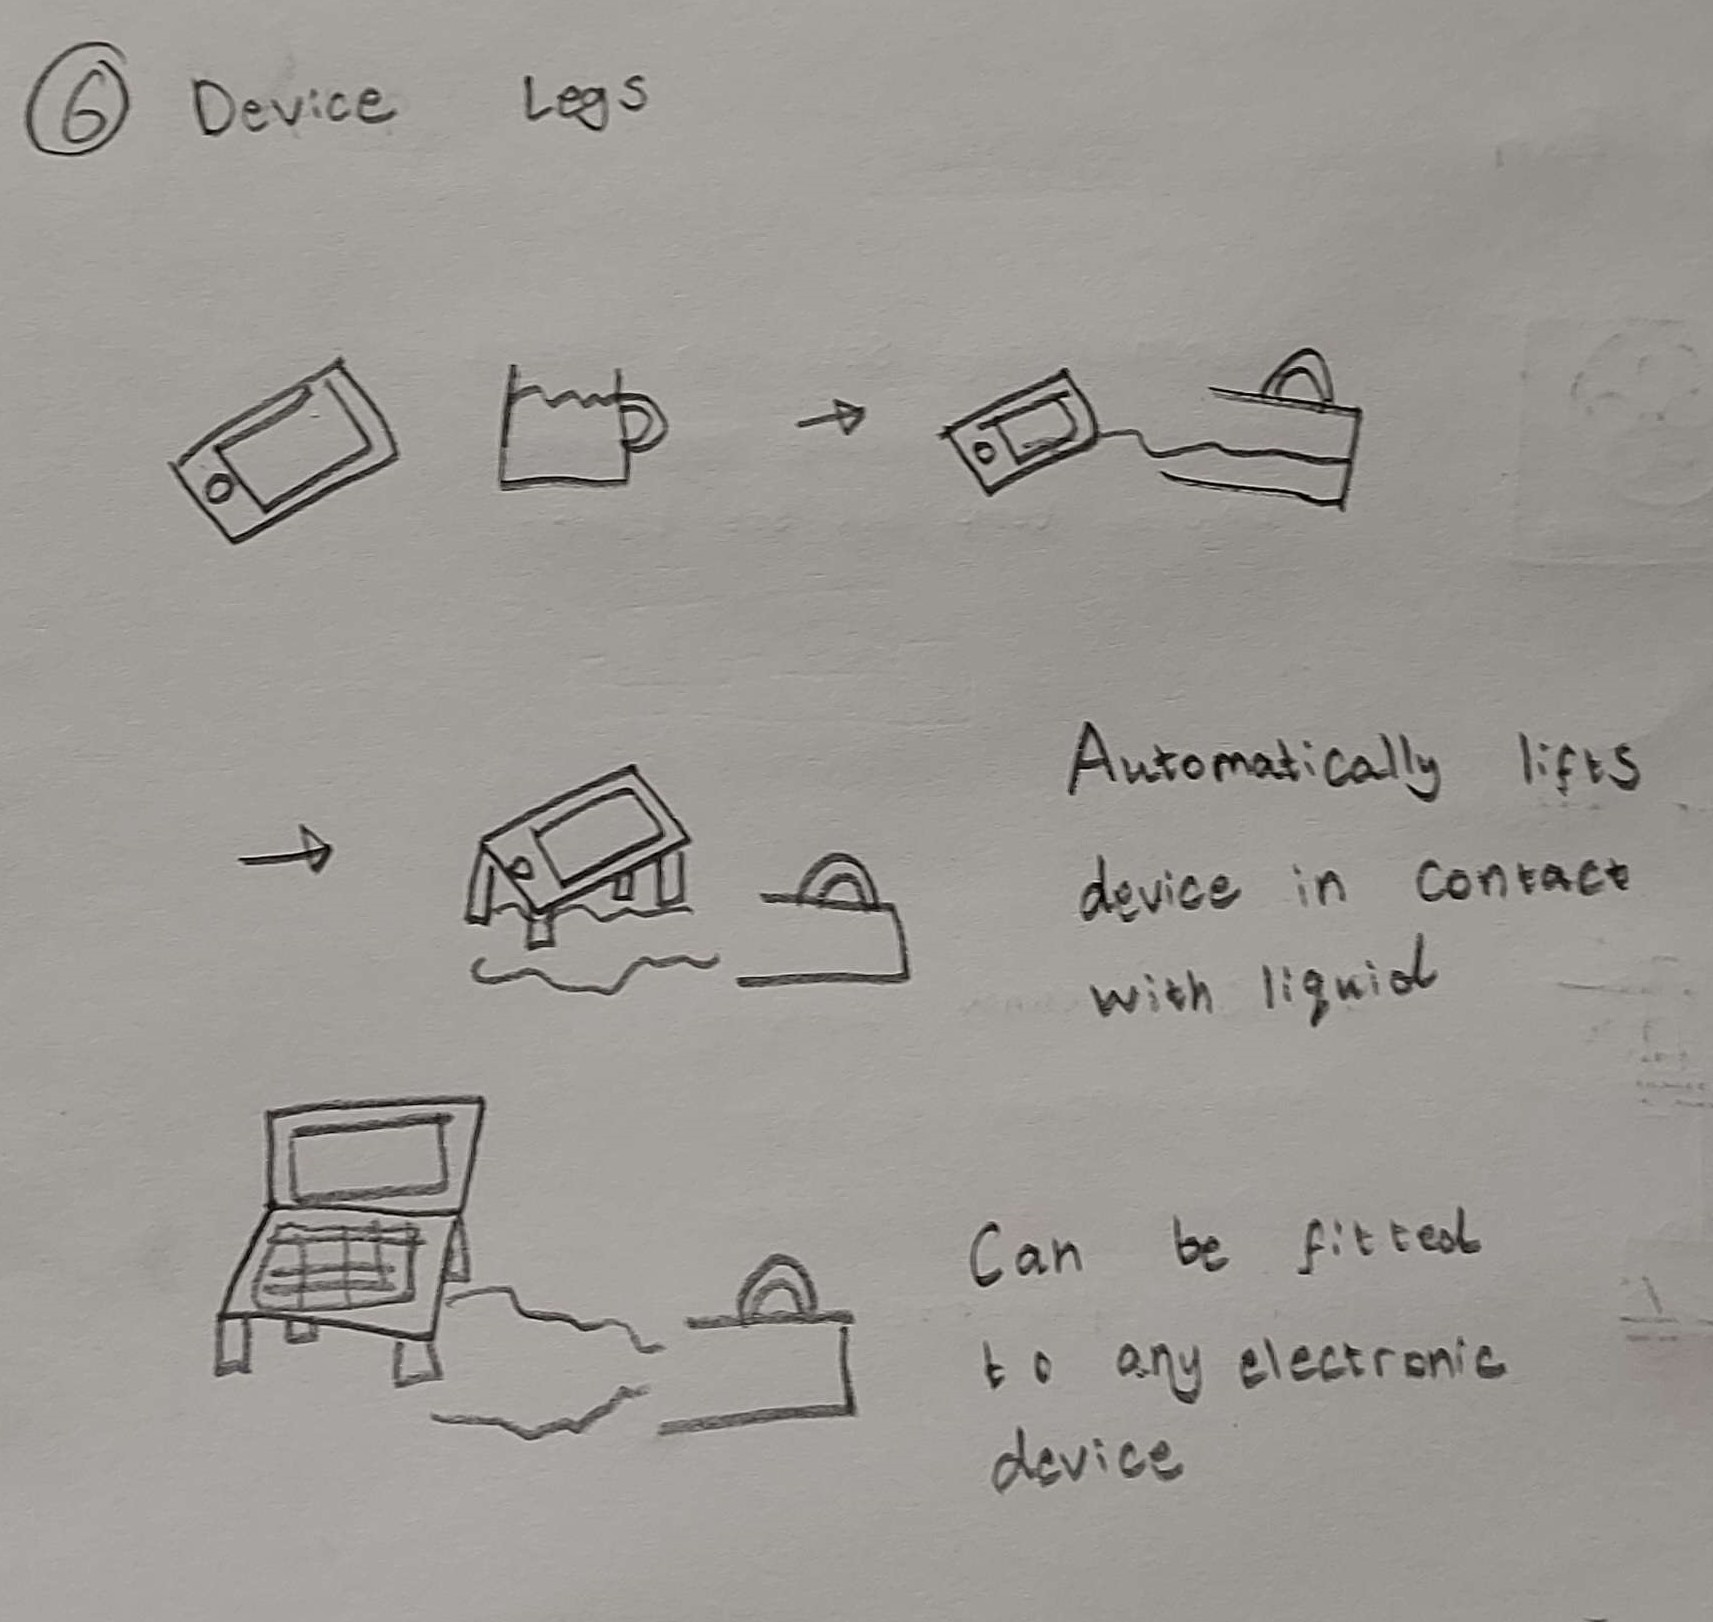 6 Device Legs
Automatically lifts
device in contact
with liquid
Can be fitted
to any electronic
device